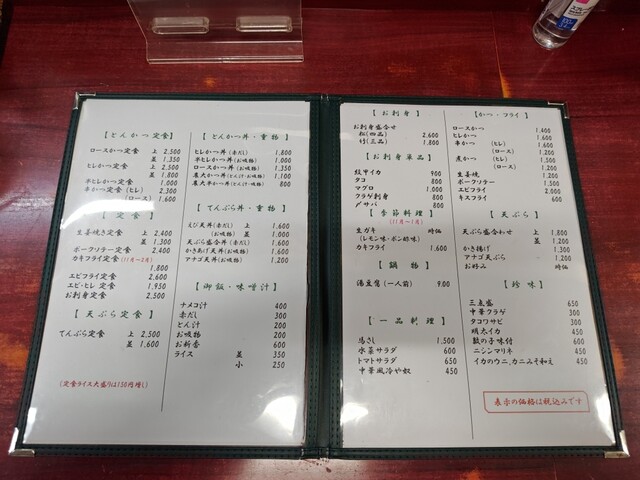 【とんかつ定食】
ロースかつ定食 上 2,500
並 1,350
ヒレかつ定食 上 2,500
並 1,800
半ヒレかつ定食 1,000
串かつ定食 (ヒレ) 2,300
(ロース) 1,600
【定食】
生姜焼き定食 上 2,400
並 1,300
ポークソテー定食 2,400
カキフライ定食(11月~2月)
1,800
エビフライ定食 2,600
エビ・ヒレ定食 1,950
お刺身定食 2,500
【天ぷら定食】
てんぷら定食 上 2,500
並 1,600
(定食ライス大盛りは150円増し)
【とんかつ丼・重物】
ヒレかつ丼(赤だし) 1,800
半ヒレかつ丼(お吸物) 1,000
ロースかつ丼(お吸物) 1,350
特大串かつ丼
800
【てんぷら丼・重物】
えび天丼(赤だし) 上 1,600
(お吸物) 並 1,000
天ぷら盛合丼(赤だし) 1,600
かきあげ天丼(お吸物) 1,200
アナゴ天丼(お吸物) 1,200
【御飯・味噌汁】
ナメコ汁 400
赤だし 300
とん汁 200
お吸物 200
お新香 600
ライス 並 350
小 250
【お刺身】
お刺身盛合せ
松(四品) 2,600
竹(三品) 1,800
【お刺身単品】
紋甲イカ 900
タコ 800
マグロ 1,000
クラゲ刺身 800
〆サバ 800
【季節料理】
(11月~2月)
生ガキ 時価
(レモン味・ポン酢味)
カキフライ 1,600
【鍋物】
湯豆腐(一人前) 900
【一品料理】
馬さし 1,500
水菜サラダ 650
トマトサラダ 650
中華風冷や奴 450
【かつ・フライ】
ロースかつ 1,400
ヒレかつ 1,600
串かつ (ヒレ) 1,600
(ロース) 1,200
虎かつ (ヒレ) 1,500
(ロース) 1,200
生姜焼 1,200
ポークソテー 1,500
エビフライ 2,000
キスフライ 600
【天ぷら】
天ぷら盛合わせ 上 1,800
並 1,200
かき揚げ 1,300
アナゴ天ぷら 1,200
お好み 時価
【珍味】
三点盛 650
中華クラゲ 300
タコワサビ 300
明太イカ 450
数の子味付 500
ニシンマリネ 450
イカのウニ、カニみそ和え 450
表示の価格は税込みです